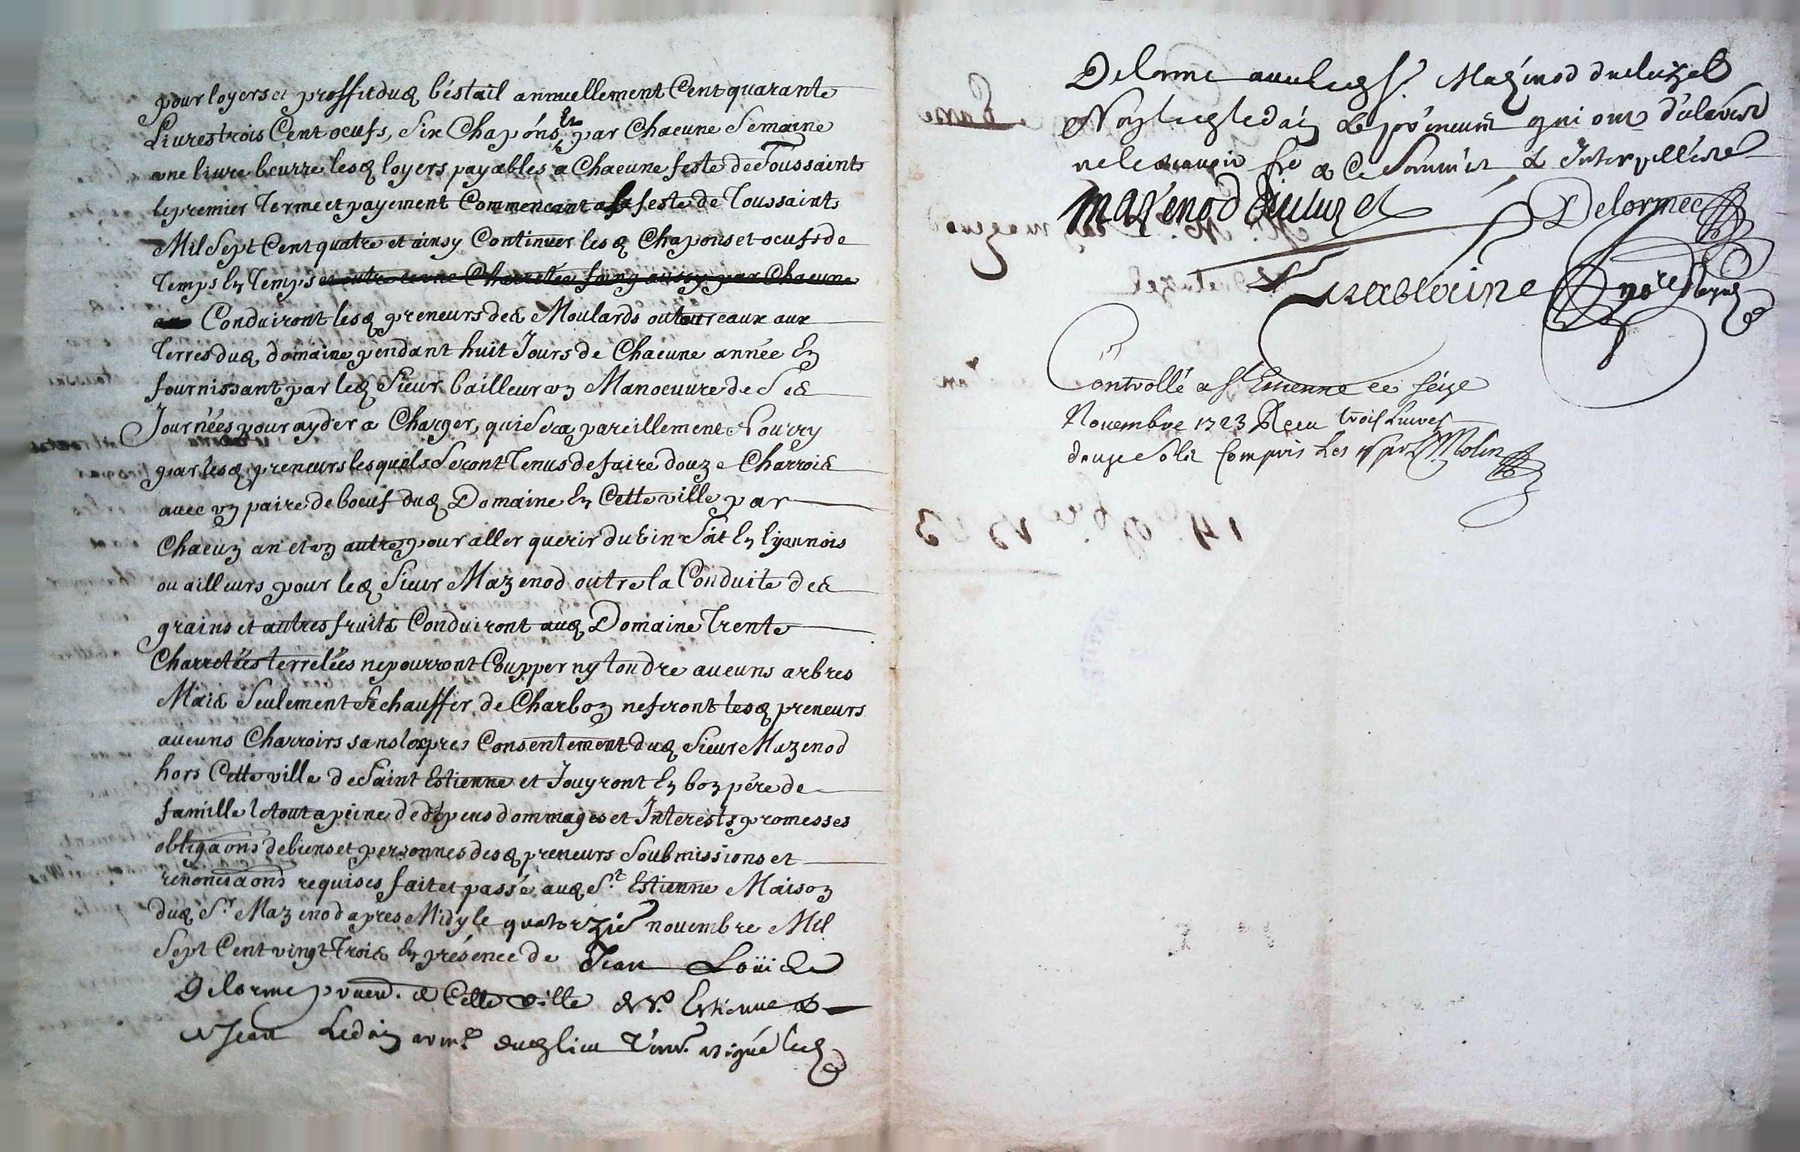 pour loyers et proffit dud bêstail annuellement Cent quarante
Livres trois Cent oeufs, six Chapóns, Et par Chacune Semaine
une livre beurre lesd loyers payables a Chacune feste de Toussaints
le premier Terme et payement Commencant a la feste de Toussaints
Mil Sept Cent quatre et ainsy Continuer lesd Chapons et oeufs de
Temps En Temps
Conduiront lesd preneurs des Moulards ou tourreaux aux
Terres dud domaine pendant huit Jours de Chacune année En
fournissant par led Sieur bailleur un Manoeuvre de Ses
Journées pour ayder a Charger, qui Sera pareillement Nourry
par lesd preneurs lesquels Seront Tenus de faire douze Charrois
avec un paire de boeuf dud Domaine En Cette ville par
Chacun an et un autre pour aller querir du vin Soit En lyonnois
ou ailleurs pour led Sieur Mazenod outre la Conduite des
grains et autres fruits Conduiront aud Domaine Trente
Charretées terrelées ne pourront Coupper ny tondre aucuns arbres
Mais Seulement Sechauffer de Charbon ne feront lesd preneurs
aucuns Charroirs sans lexpres Consentement dud Sieur Mazenod
hors Cette ville de Saint Estienne et Jouyront En bon père de
famille le tout a peine de dépens dommages et Interests promesses
obligaons de biens et personnes desd preneurs Soubmissions et
renonciaons requises fait et passé aud St Estienne Maison
dud Sr Mazenod apres Midy le quatorzie novembre Mil
Sept Cent vingt Trois En présence de Jean Loüis
Delorme de Cette ville de St Estienne &
Jean Ledin dud lieu signé
Delorme avec led Sr. Mazenod duluzel
Non led Ledin & preneurs qui ont déclaré
ne le scavoir fe de Ce Sommés & Interpellés
Mazenod Duluzel
Delorme
Controllé a St Estienne ce seize
Novembre 1723 Receu trois Livres
douze Sols Compris Les Molin